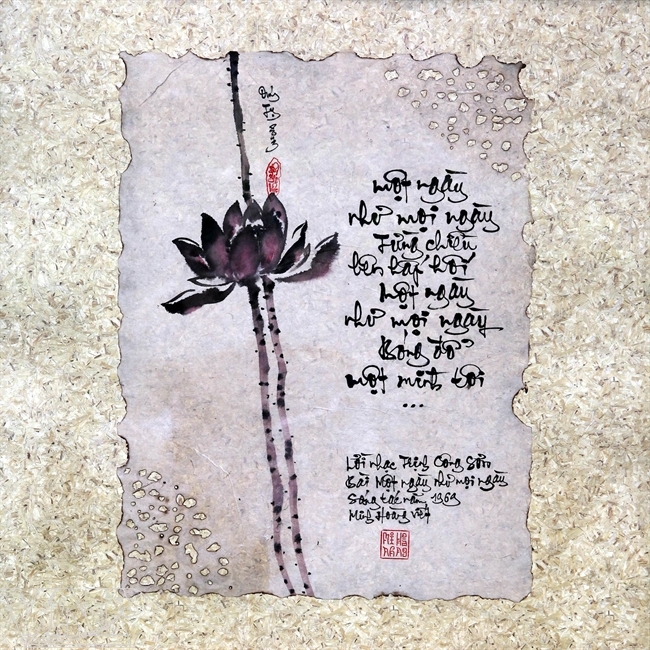 một ngày
như mọi ngày
Từng chiều
lên hấp hối
Một ngày
như mọi ngày
Bóng đổ
một mình tôi
...
Lời nhạc Trịnh Công Sơn
Bài Một ngày như mọi ngày
Sáng tác năm
Minh Hoàng viết